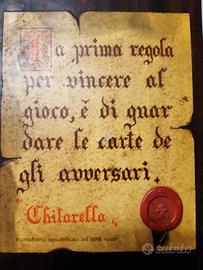 La prima regola
per vincere al
gioco, è di guar
dare le carte de
gli avversari.
"Chitarella"
subito